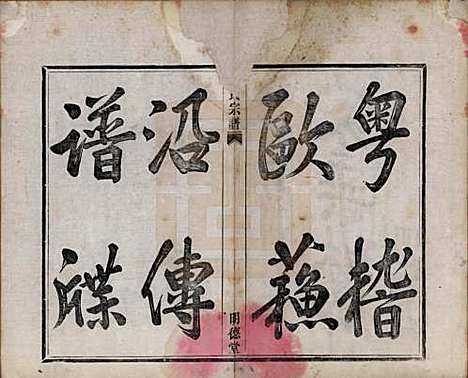 粤稽
歐蘓
宗譜
明德堂
沿傳
譜牒